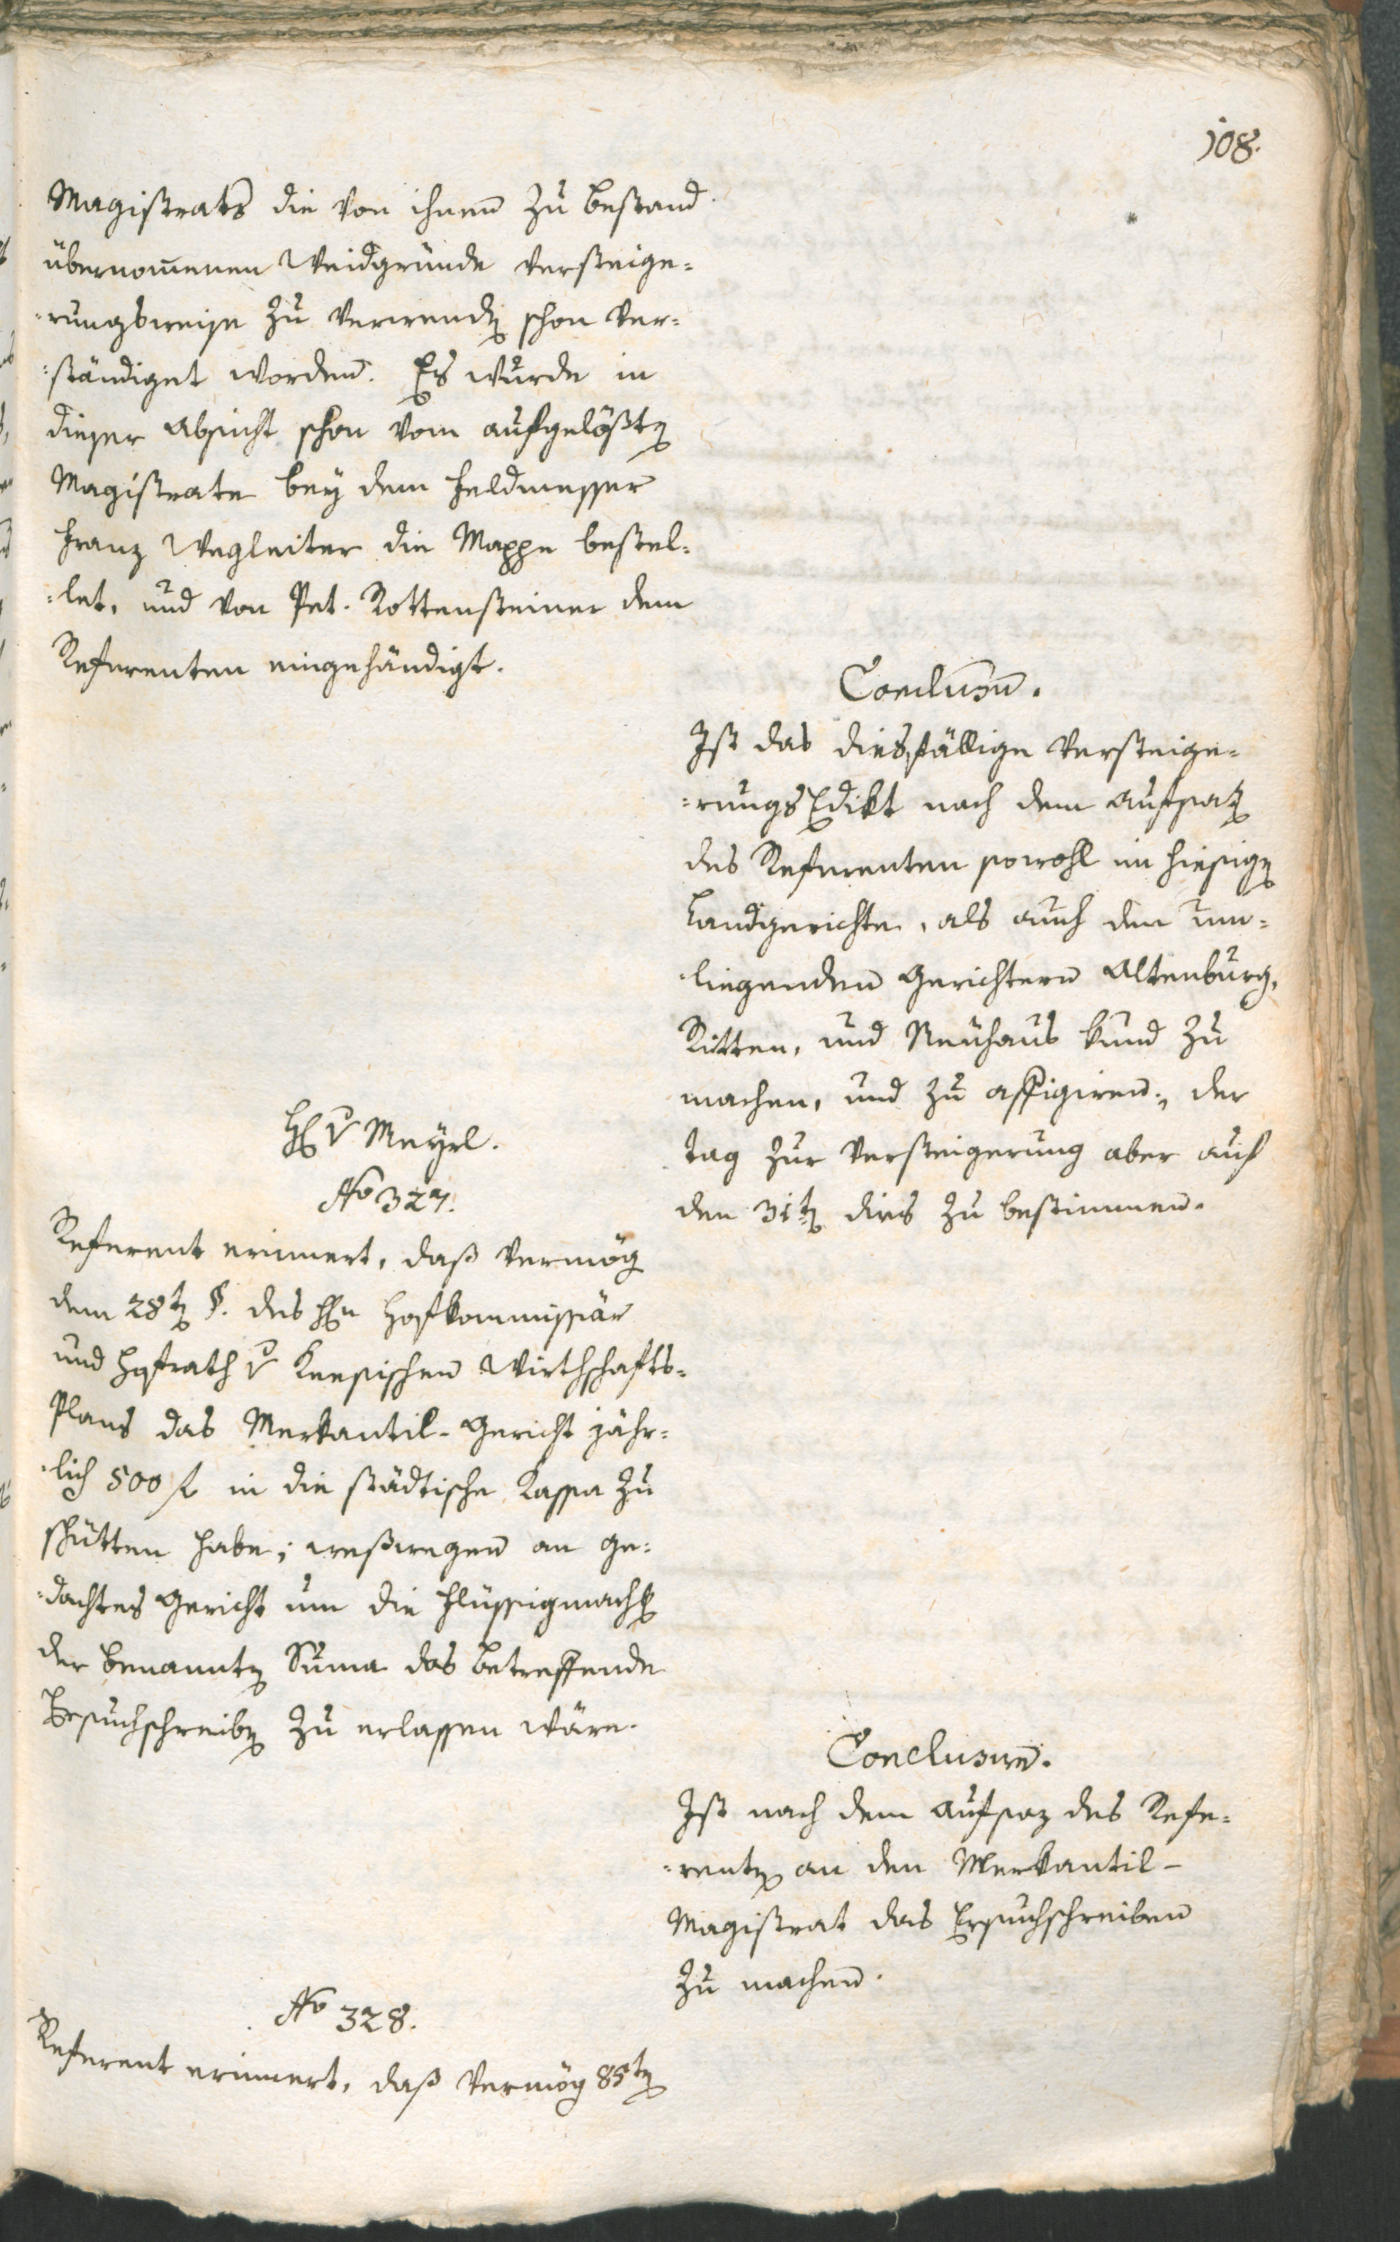 108.
Magistrats die von ihnen zu bestand
übernom̅enen Weidgründe versteige=
=rungsweise zu verwend[en] schon ver=
=ständiget worden. Es wurde in
dieser Absicht schon vom aufgelößt[en]
Magistrate bey dem Feldmesser
Franz Wegleiter die Mappe bestel=
=let, und von Pet. Rottensteiner dem
Referenten eingehändigt.
Conclusum.
Ist das diesfällige Versteige=
=rungs Edikt nach dem Aufsatz
des Referenten sowohl im hiesig[en]
Landgerichte, als auch den um=
=liegenden Gerichtern Altenburg,
Ritten, und Neuhaus kund zu
machen, und zu affigiren; der
Tag zur Versteigerung aber auf
den 31t[en] dies zu bestimmen.
H[err] v Meyrl.
No 327.
Referent erinnert, daß vermög
dem 28t[en] §. des H[err]n Hofkommissär
und Hofrath v Keesischen Wirthschafts=
Plans das Merkantil-Gericht jähr=
=lich 500 f in die städtische Kassa zu
schütten habe; weßwegen an ge=
=dachtes Gericht um die Flüssigmach[ung]
der benannt[en] Sum̅a das betreffende
Ersuchschreib[en] zu erlassen wäre.
Conclusum.
Ist nach dem Aufsaz des Refe=
=rent[en] an den Merkantil-
Magistrat das Ersuchschreiben
zu machen.
No 328.
Referent erinnert, daß vermög 85t[en]